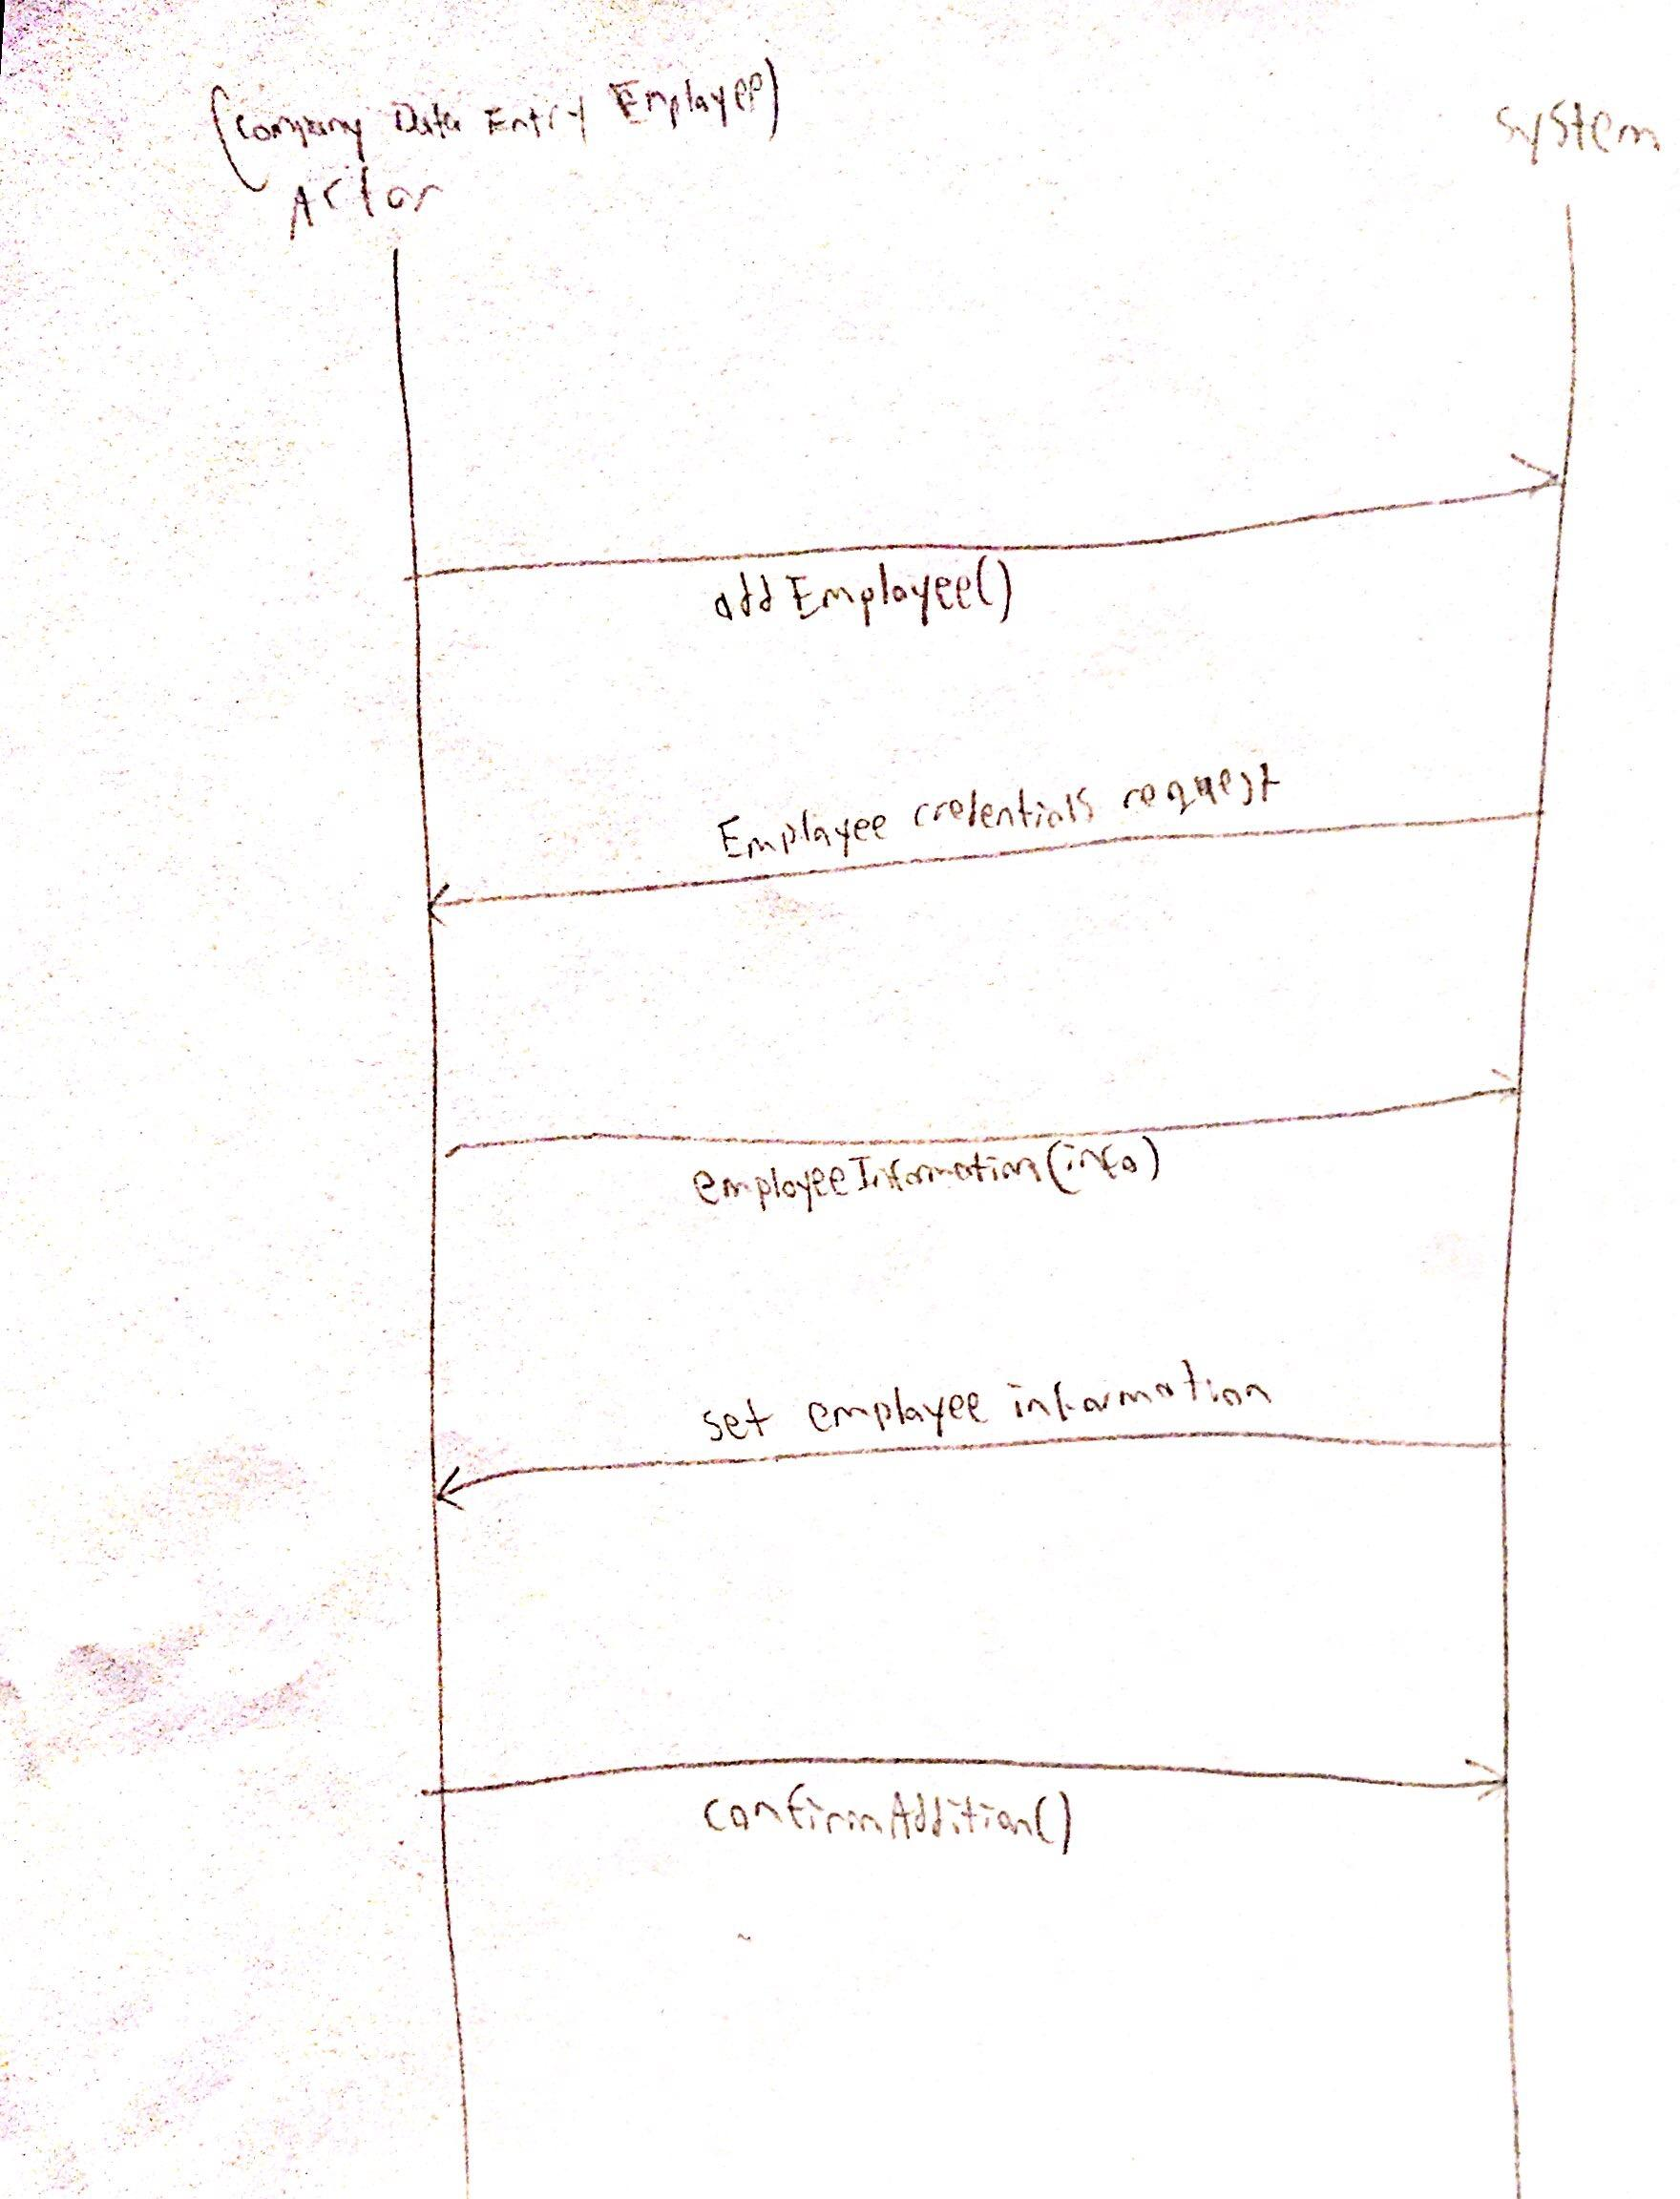 (Company Data Entry Employee)
Actor
System
addEmployee()
Employee credentials request
employeeInformation(info)
set employee information
confirmAddition()